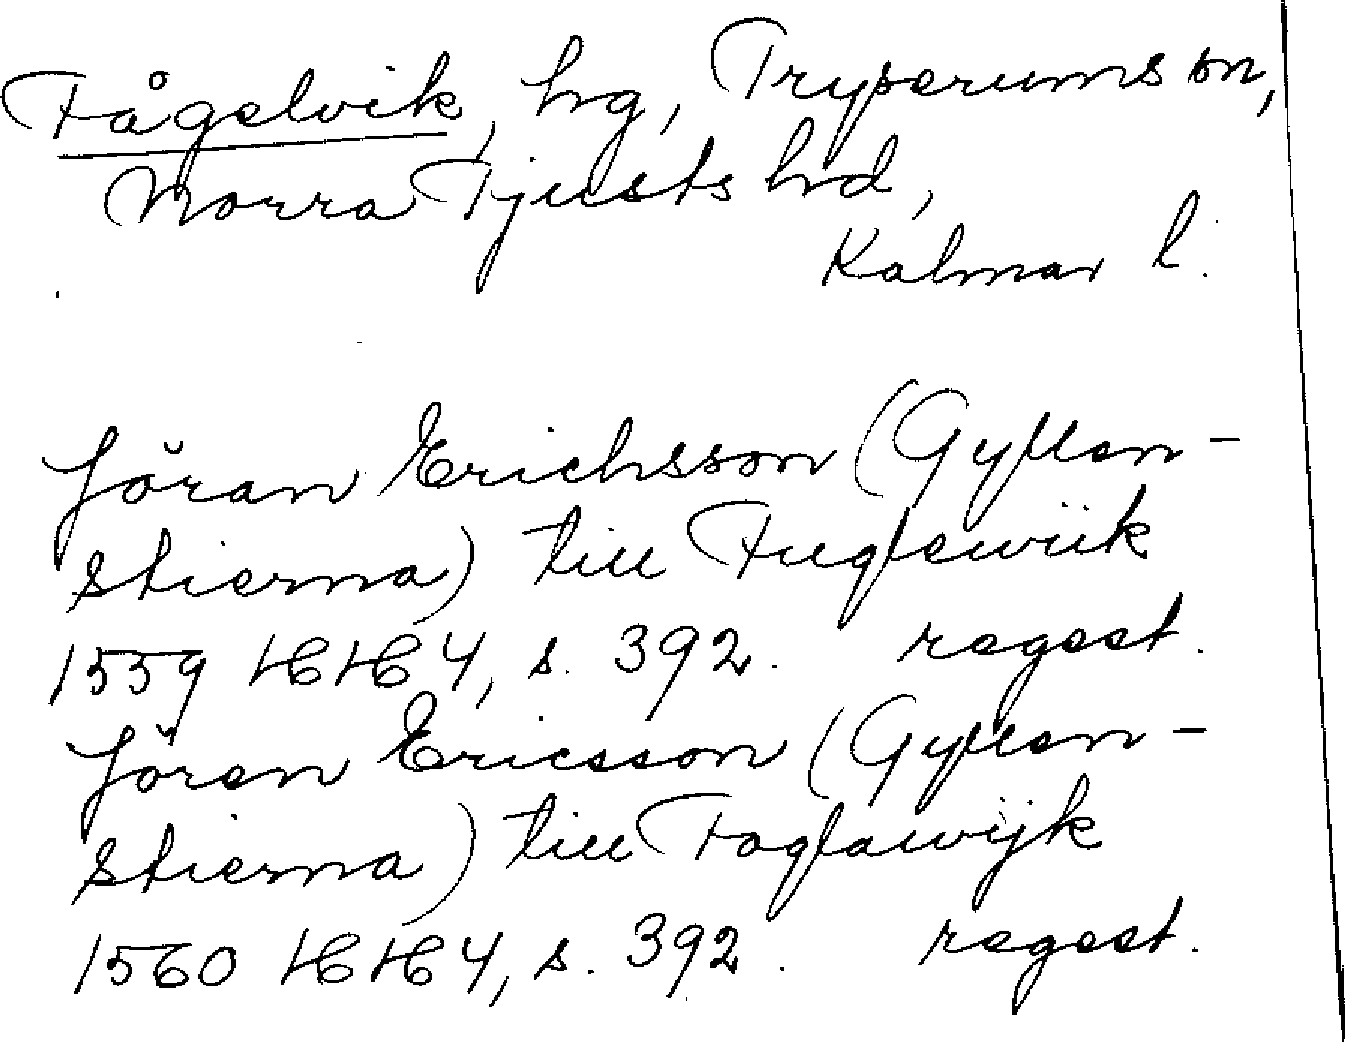 Fågelvik, hg, Tryserums sn,
Norra Tjusts hd,
Kalmar l.
Jöran Erichsson (Gyllen-
stierna) till Fuglewiik
1559 HH 4, s. 392. regest.
Jören Ericsson (Gyllen-
stierna) till Foglawijk
1560 HH 4, s. 392. regest.